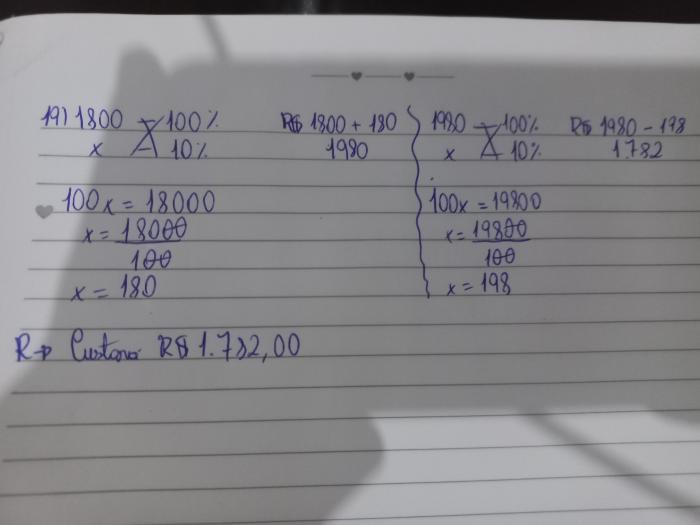 19) 1800 100% R$ 1800 + 180
x 10% 1980
100x = 18000
x = 18000
100
x = 180
1980 100% R$ 1980 - 198
x 10% 1.782
100x = 19800
x = 19800
100
x = 198
R→ Custara R$ 1.782,00